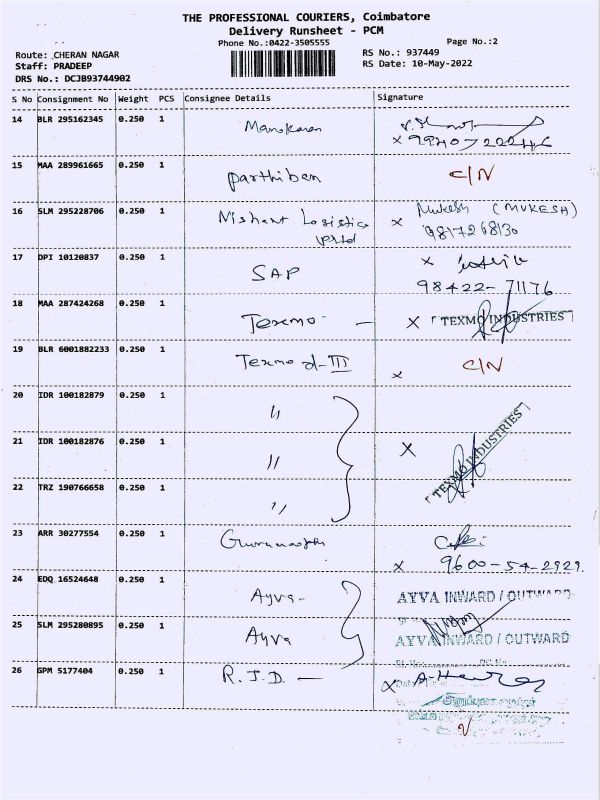 THE PROFESSIONAL COURIERS, Coimbatore
Delivery Runsheet - PCM
Phone No.:0422-3505555 Page No.:2
Route: CHERAN NAGAR RS No.: 937449
Staff: PRADEEP RS Date: 10-May-2022
DRS No.: DCJB93744902
S No Consignment No Weight PCS Consignee Details Signature
14 BLR 295162345 0.250 1 Manokaran
15 MAA 289961665 0.250 1 Parthiban C/N
16 SLM 295228706 0.250 1 Nishant Logistics Mukesh (MUKESH)
Pvt ltd x
17 DPI 10120837 0.250 1 SAP x
98422-71176
18 MAA 287424268 0.250 1 Texmo - x TEXMO INDUSTRIES
19 BLR 6001882233 0.250 1 Texmo d-III x C/N
20 IDR 100182879 0.250 1 "
21 IDR 100182876 0.250 1 " x TEXMO INDUSTRIES
22 TRZ 190766658 0.250 1 "
23 ARR 30277554 0.250 1 Gurumoorthy
x 9600-54-2929
24 EDQ 16524648 0.250 1 Ayva - AYVA INWARD / OUTWARD
25 SLM 295280895 0.250 1 Ayva AYVA INWARD / OUTWARD
26 GPM 5177404 0.250 1 R.J.D. - x